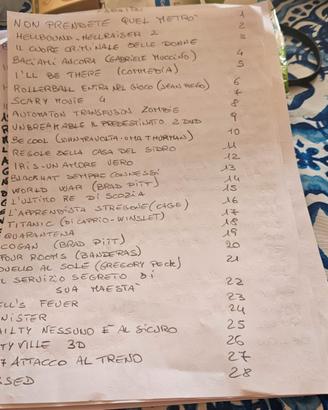 NON PRENDETE QUEL METRO' 1
HELLBOUND-HELLRAISER 2 2
IL CUORE CRIMINALE DELLE DONNE 3
BACIAMI ANCORA (GABRIELE MUCCINO) 4
I'LL BE THERE (COMMEDIA) 5
ROLLERBALL ENTRA NEL GIOCO (JEAN RENO) 6
SCARY MOVIE 4 7
AUTOMATON TRANSFUSION ZOMBIE 8
UNBREAKABLE IL PREDESTINATO 2 DVD 9
BE COOL (JOHN TRAVOLTA-UMA THURMAN) 10
REGOLE DELLA CASA DEL SIDRO 11
IRIS-UN AMORE VERO 12
BLACKHAT SEMPRE CONNESSI 13
WORLD WAR (BRAD PITT) 14
L'ULTIMO RE DI SCOZIA 15
L'APPRENDISTA STREGONE (CAGE) 16
TITANIC (DI CAPRIO-WINSLET) 17
QUARANTENA 18
COGAN (BRAD PITT) 19
FOUR ROOMS (BANDERAS) 20
DUELLO AL SOLE (GREGORY PECK) 21
L SERVIZIO SEGRETO DI
SUA MAESTA' 22
ELL'S FEVER 23
NISTER 24
AILTY NESSUNO È AL SICURO 25
TYVILLE 3D 26
7 ATTACCO AL TRENO 27
SSED 28